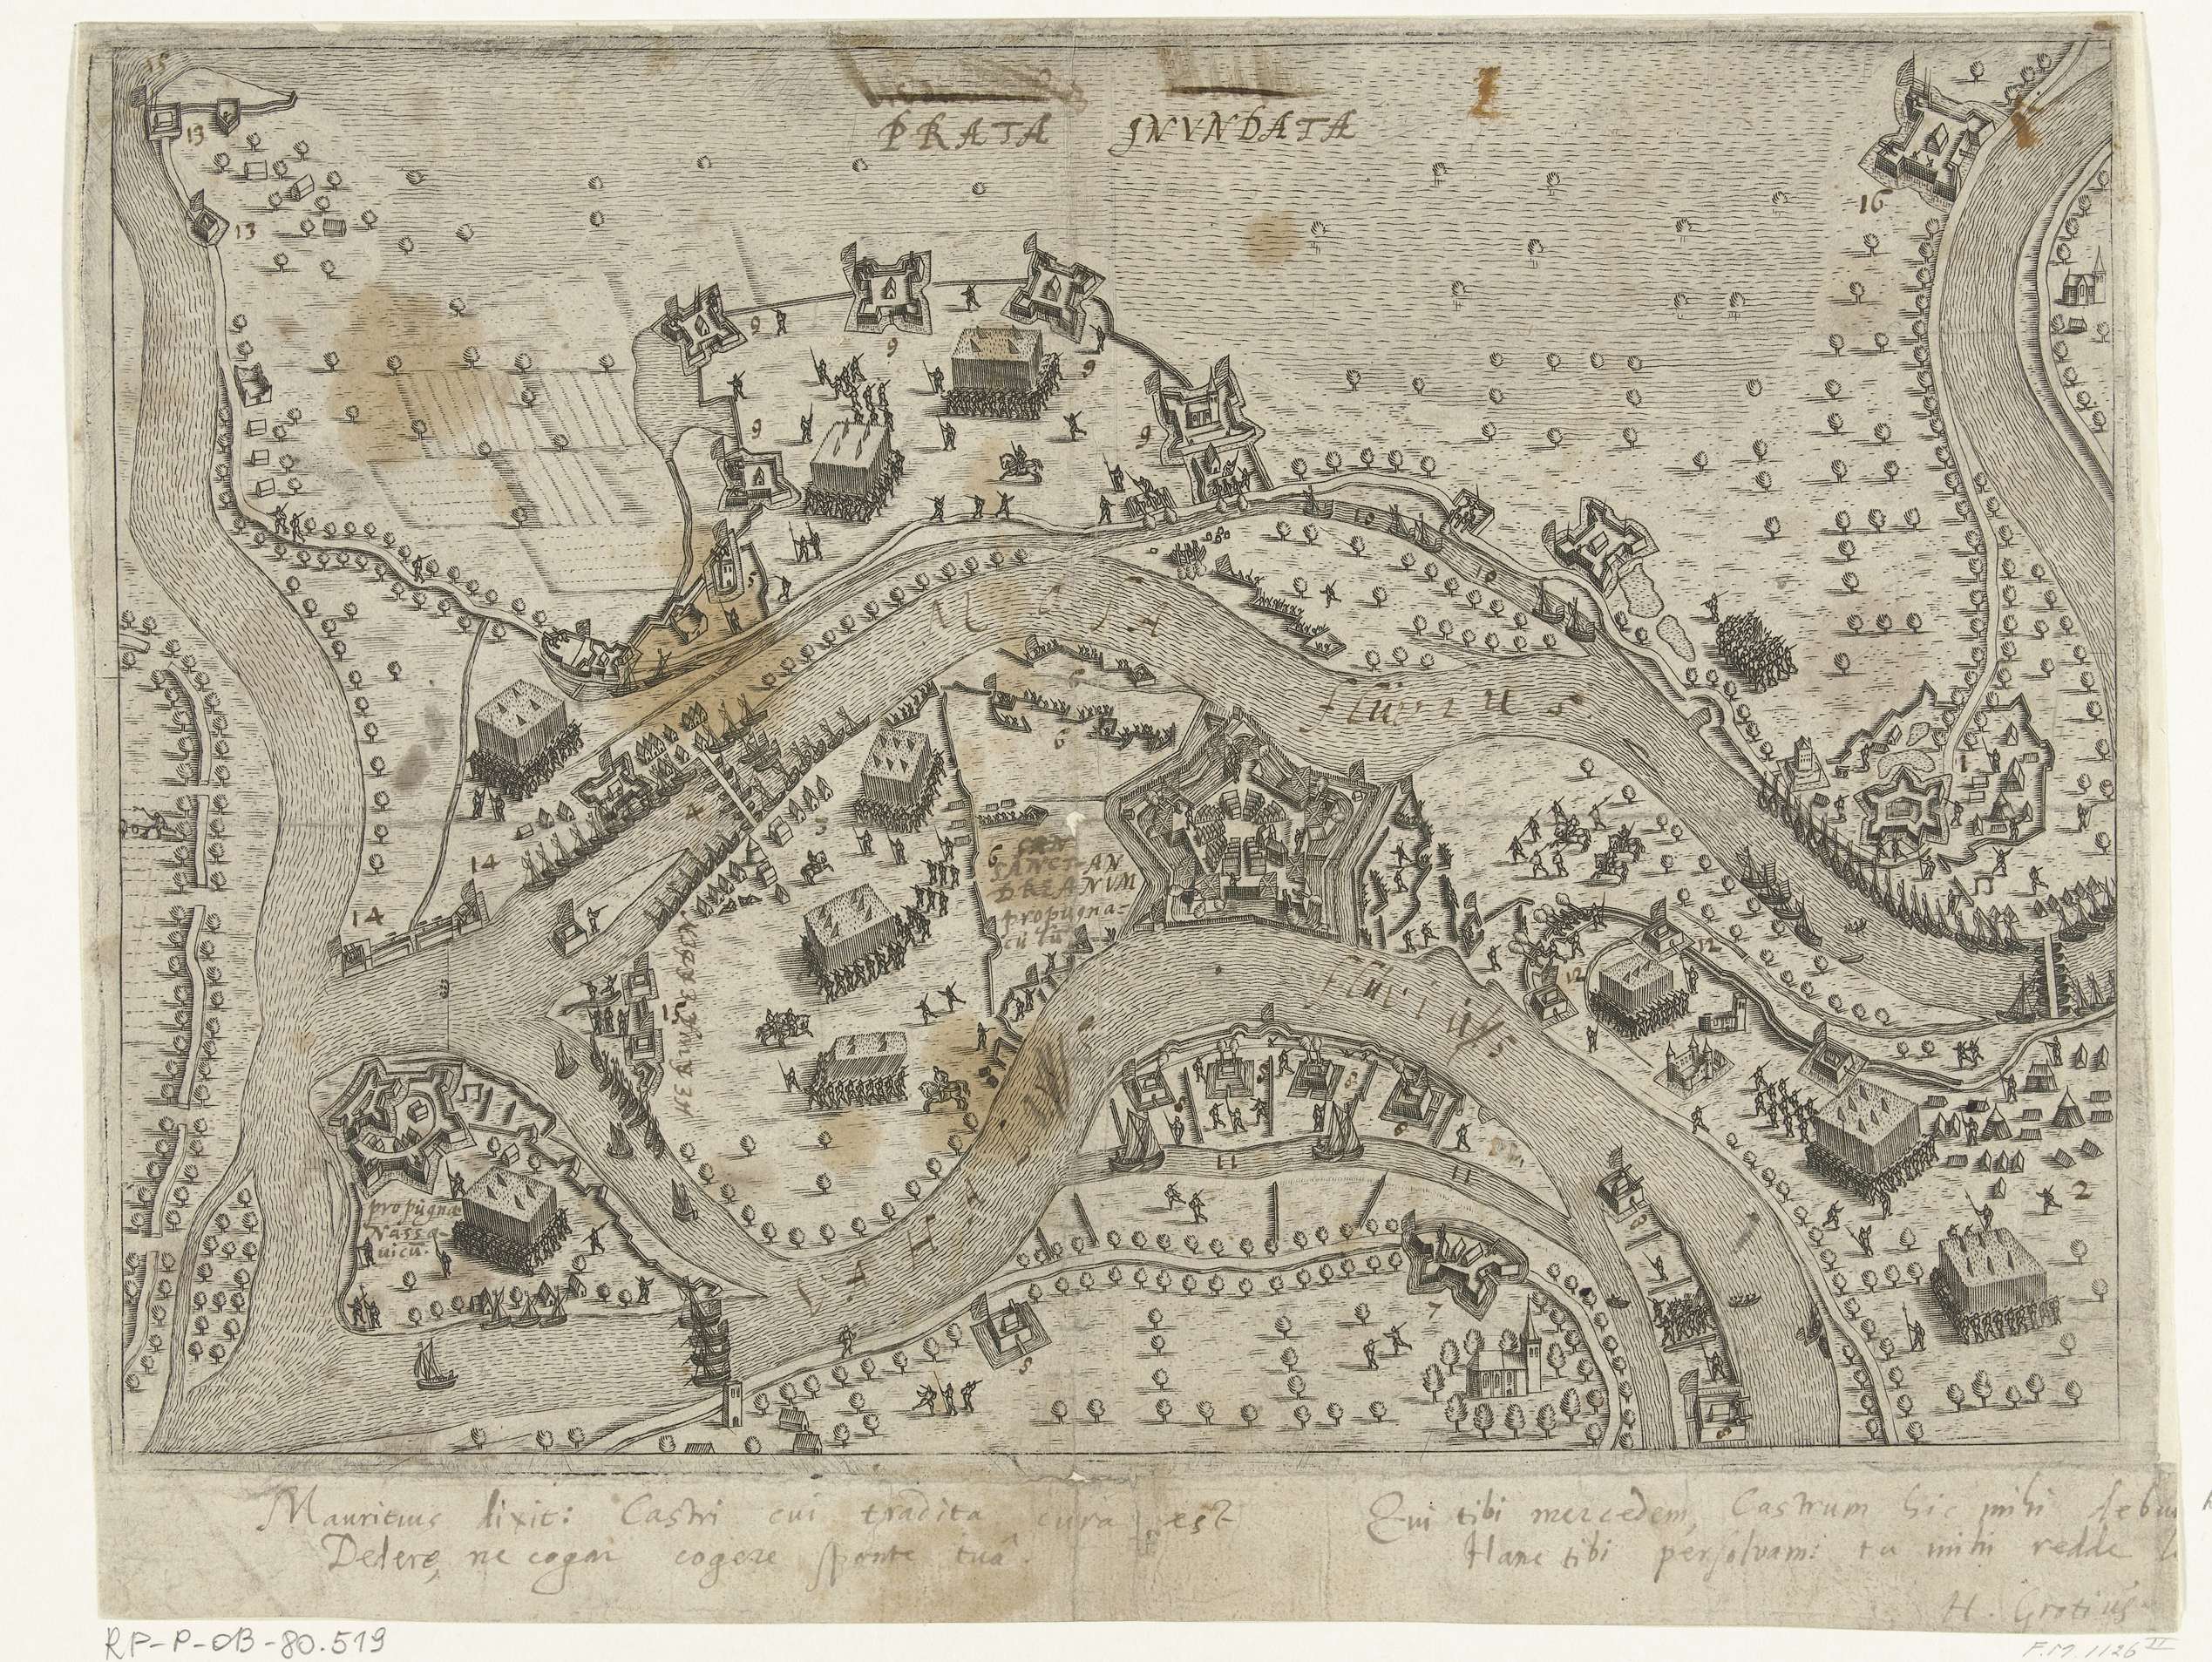 15
13
PRATA INVNDATA
13
16
9
9
9
9
9
5
10
10
8
MOSA
fluvius
6
6
4
3
1
14
14
6 CAN
SANCT-AN
DREANVM
propugna=
cu lū
12
12
15
fluvius
8
8
8
11
11
propugna
Nassa-
uicū.
VAHA
2
8
7
8
8
Mauritius dixit: Castri cui tradita cura est
Dedere, ne cogar cogere sponte tuâ.
Qui tibi mercedem, Castrum hic mihi debu
Hanc tibi persolvam: tu mihi redde
H. Grotius
RP-P-OB-80.519
F.M. 1126 II